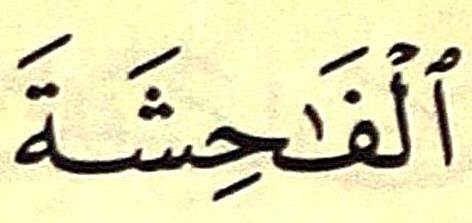 ٱلْفَـٰحِشَةَ